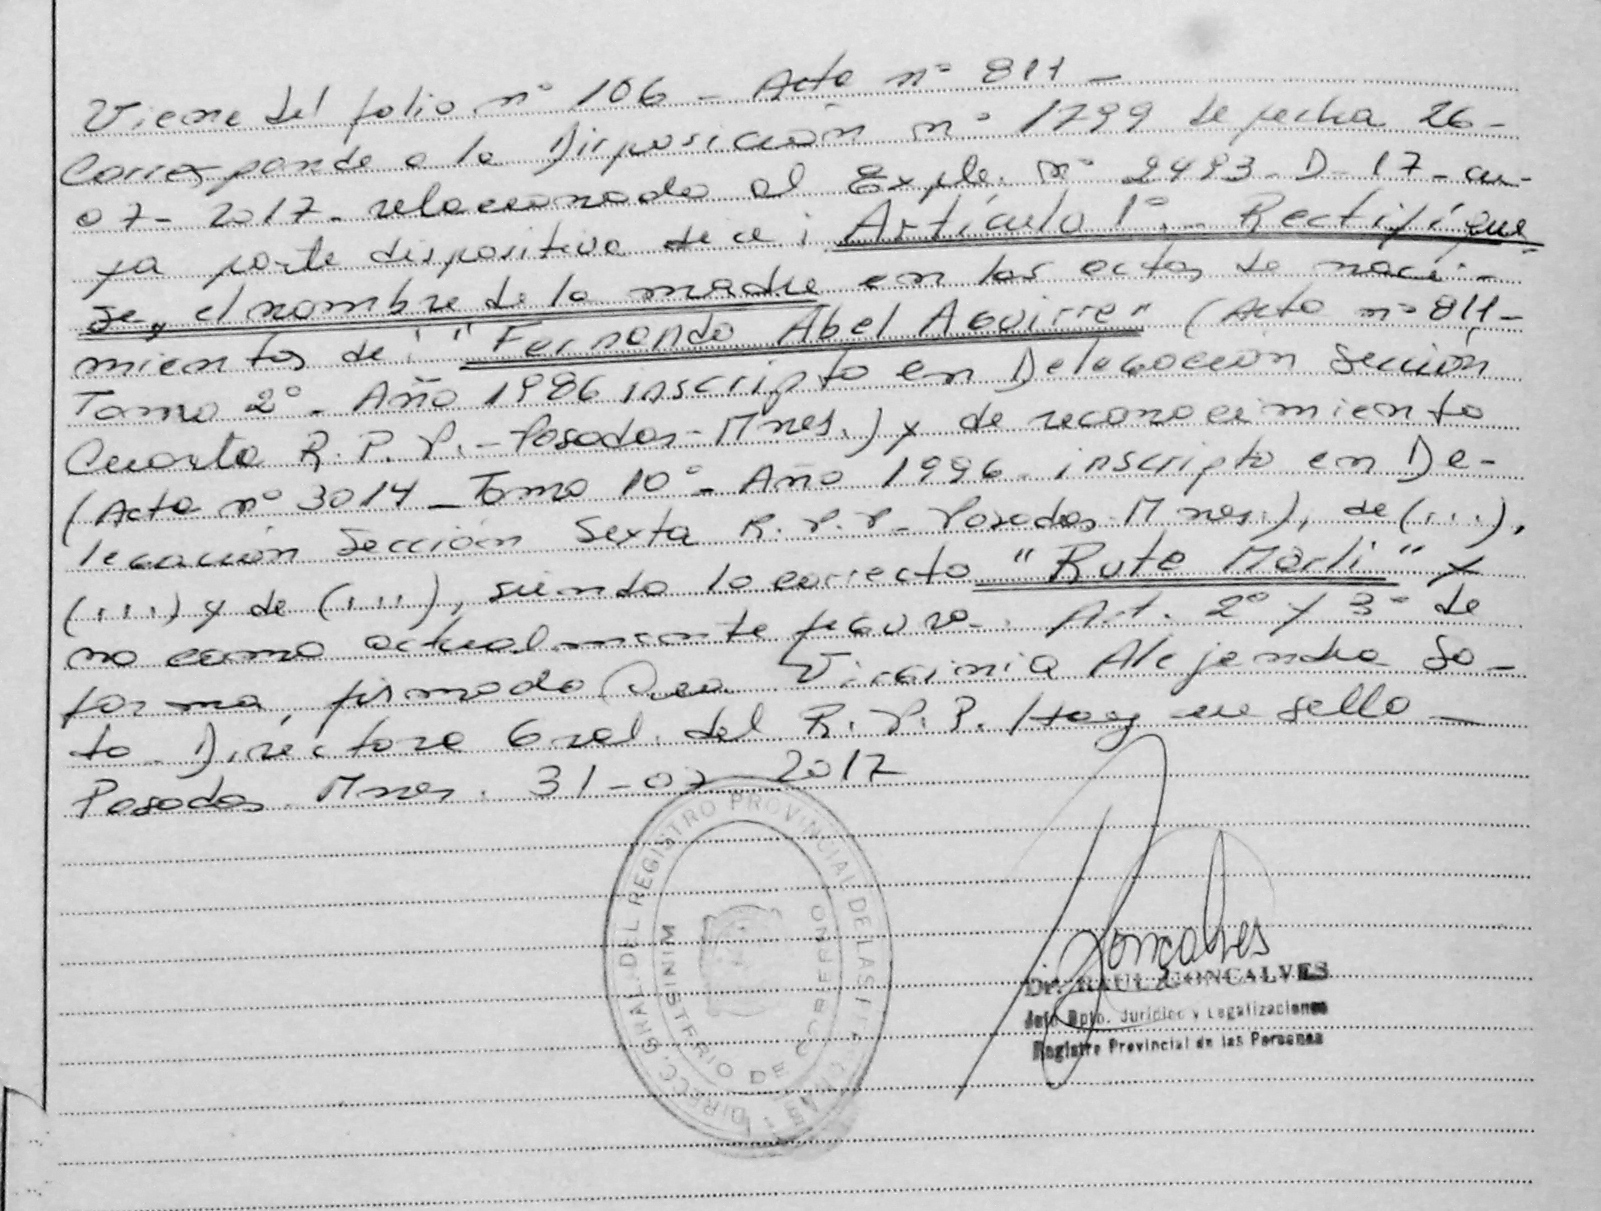 Viene del folio nº 106 - Acta nº 811 -
Corresponde a la Disposición nº 1799 de fecha 26-
07-2017- relacionado al Expte. nº 2493-D-17- cu-
ya parte dispositiva dice: Artículo 1º.- Rectifíque
se, el nombre de la madre en las actas de naci-
mientos de: "Fernando Abel Aguirre" (Acta nº 811-
Tomo 2º- Año 1986 inscripto en Delegación Sección
Cuarta R.P.P.- Posadas- Mnes.) y de reconocimiento
(Acta nº 3014 - Tomo 10º- Año 1996- inscripto en De-
legación Sección Sexta R.P.P- Posadas- Mnes.), de (...),
(...) y de (...), siendo lo correcto "Rute Marli" y
no como actualmente figura.- Art. 2º y 3º de
forma, firmado Virginia Alejandra So-
to- Directora Gral. del R.P.P. Hay un sello -
Posadas. Mnes. 31-07-2017
DIRECC. GRAL. DEL REGISTRO PROVINCIAL DE LAS
MINISTERIO DE GOBIERNO
Gonçalves
Dr. RAUL GONCALVES
Jefe Dpto. Jurídico y Legalizaciones
Registro Provincial de las Personas